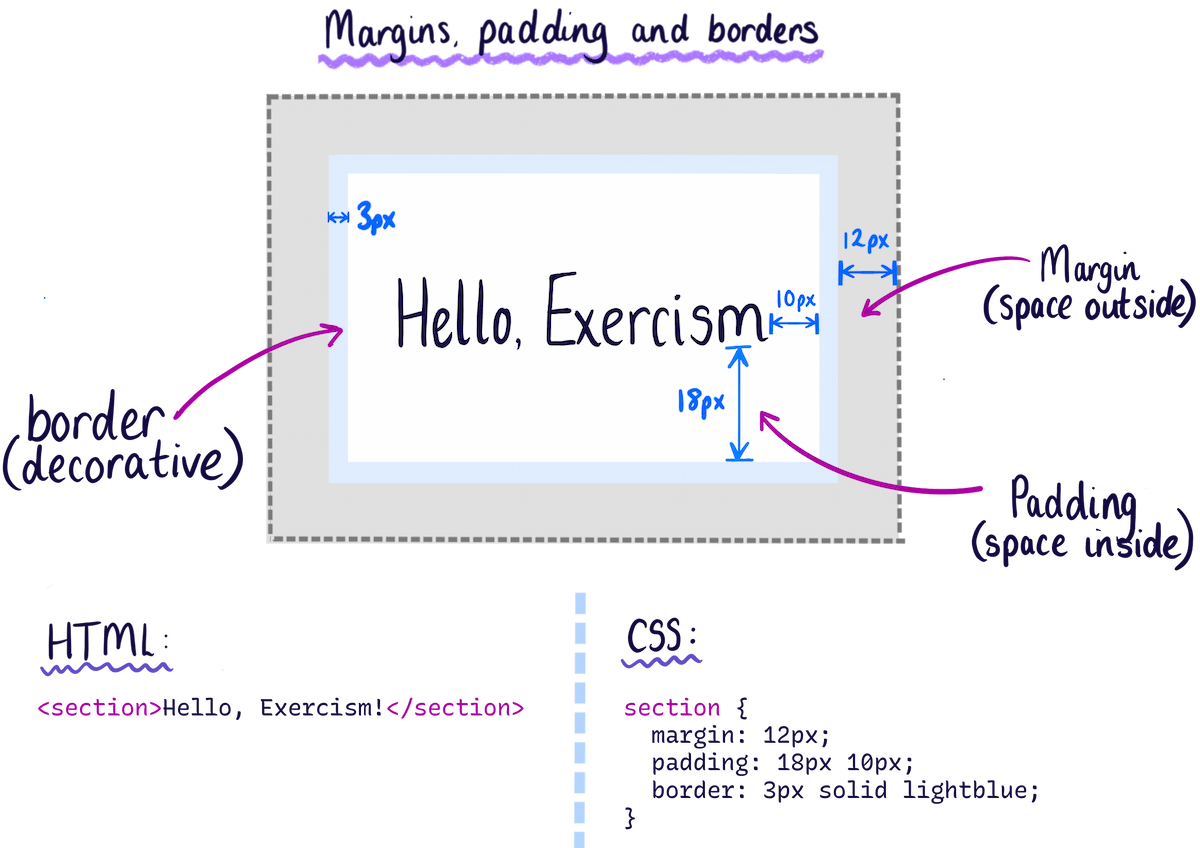 Margins, padding and borders
3px
12px
Margin
(space outside)
Hello, Exercism
10px
18px
border
(decorative)
Padding
(space inside)
HTML:
<section>Hello, Exercism!</section>
CSS:
section {
  margin: 12px;
  padding: 18px 10px;
  border: 3px solid lightblue;
}